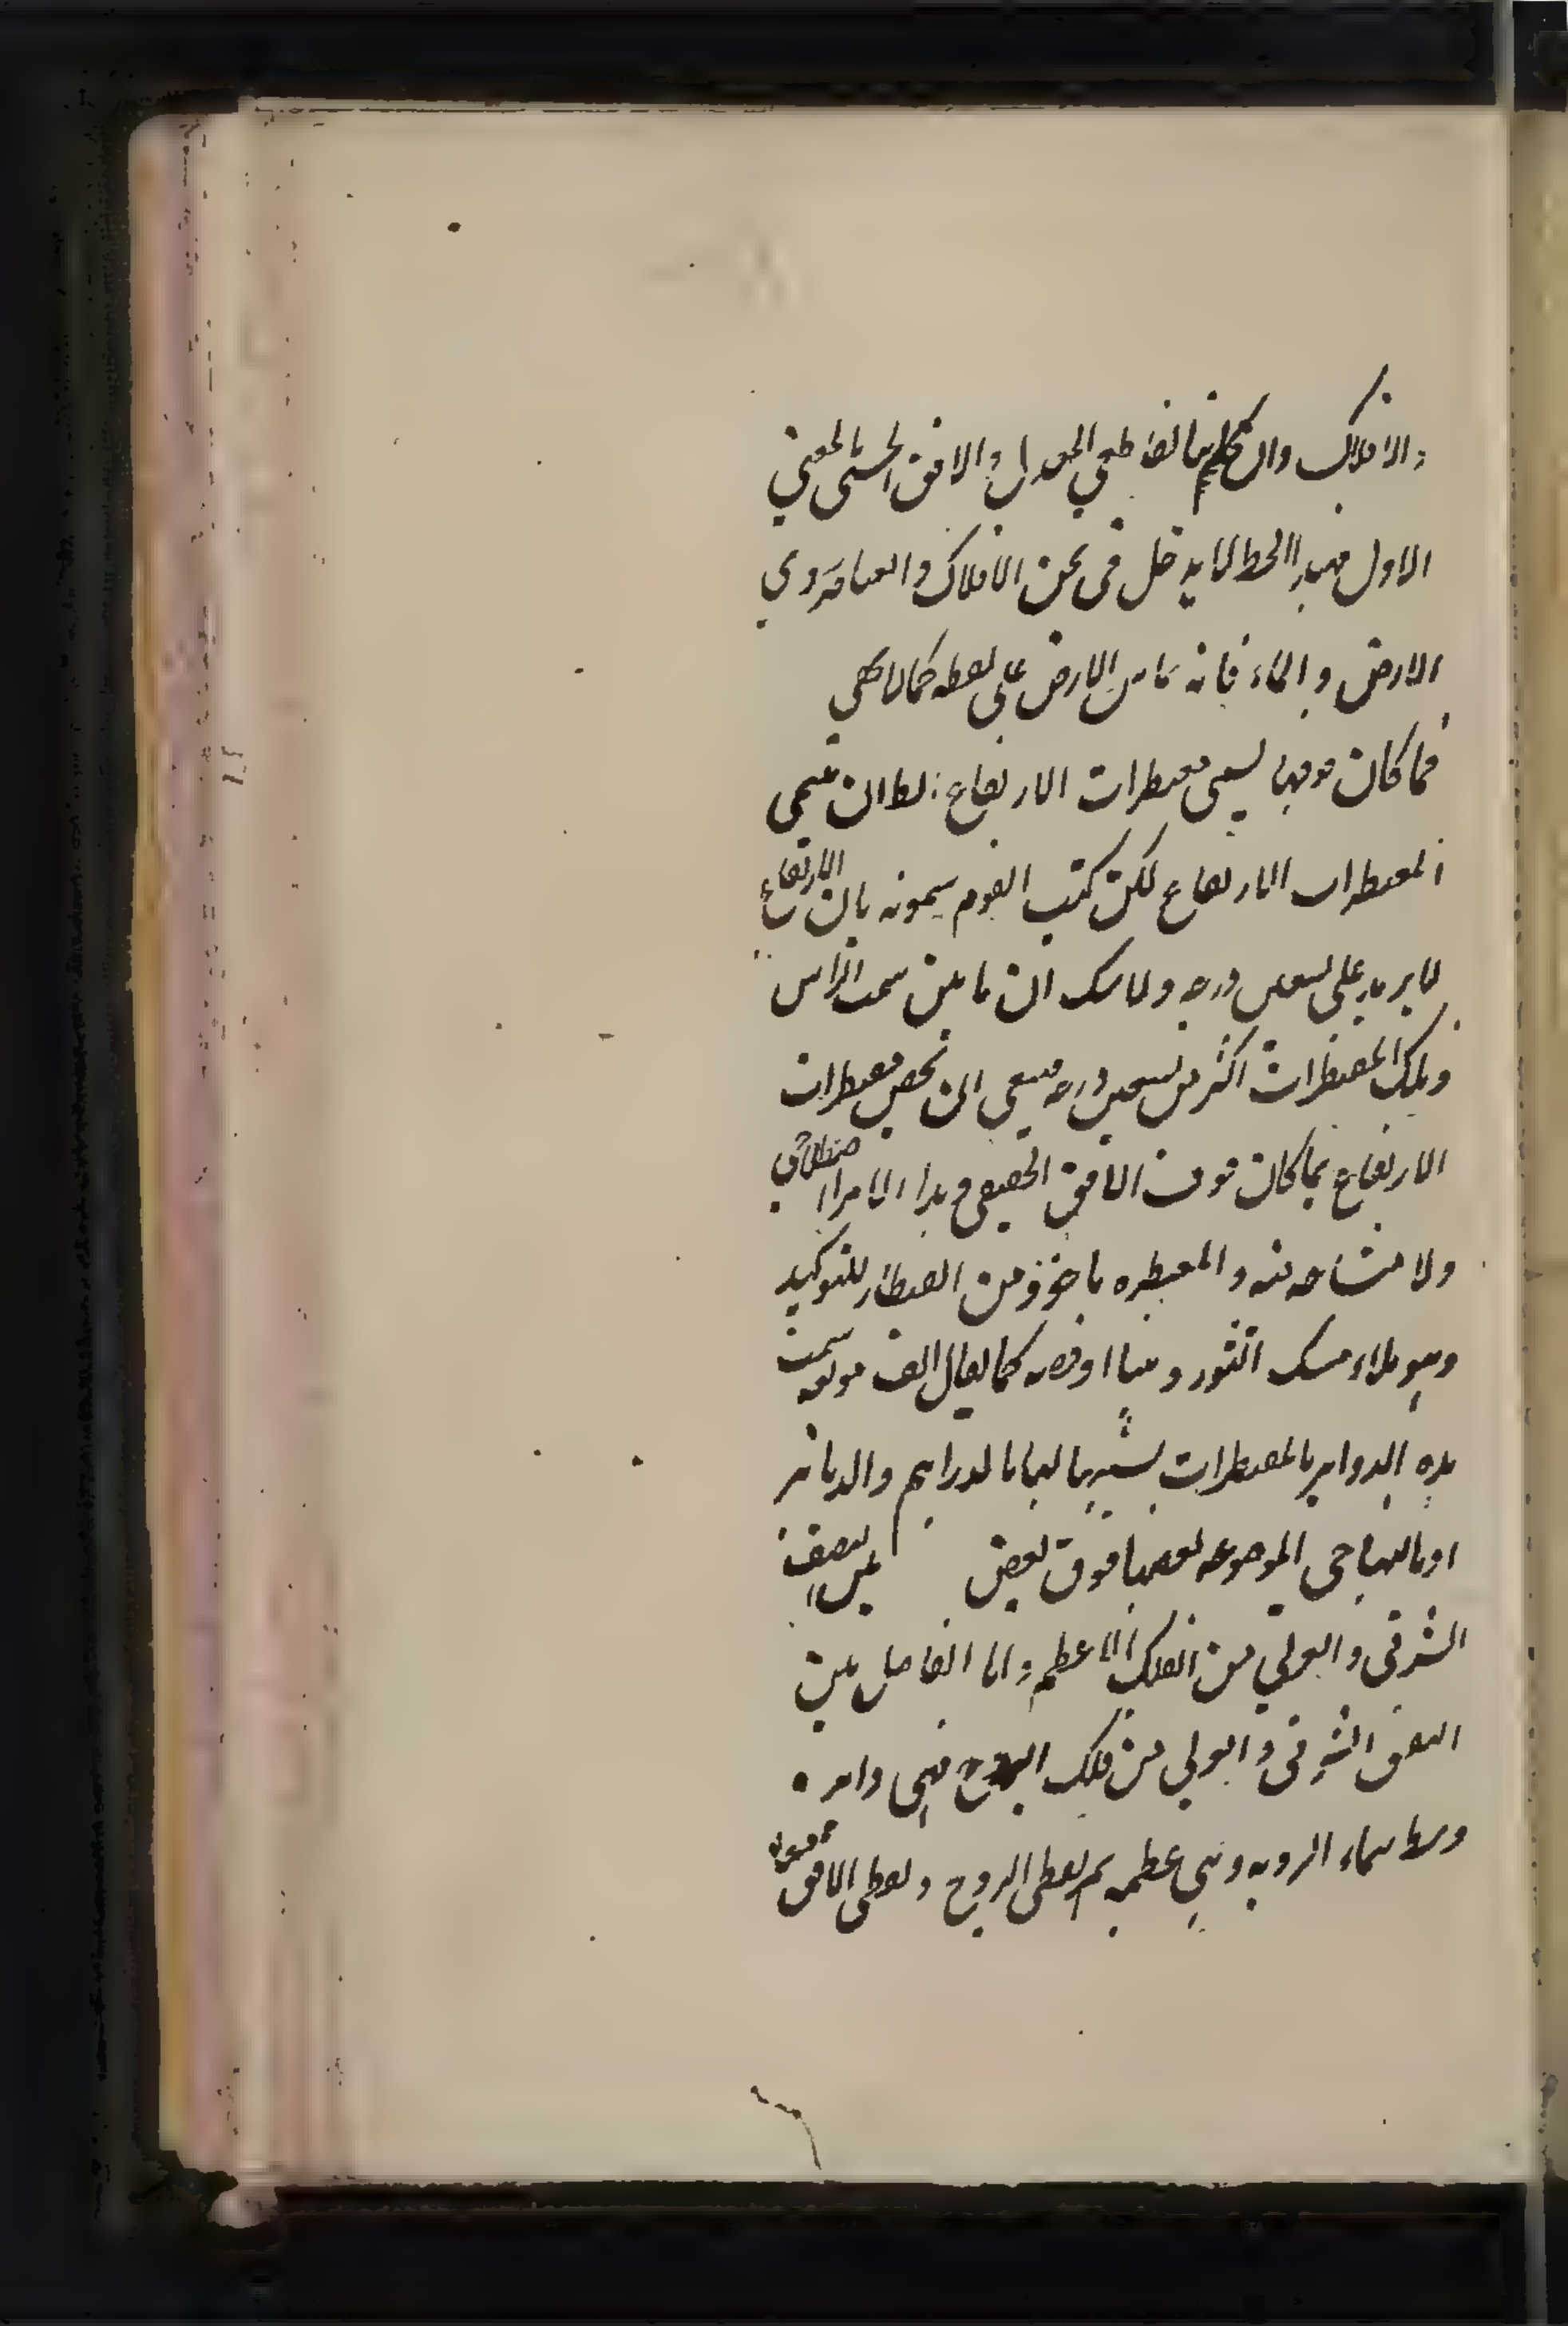 والافلاك وال بتقاطعي المعدل والافق الحسي بالمعنى
الاول فهذا الخط لا يدخل في ثخن الافلاك والعناصر سوى
الارض والماء فانه يماس الارض على نقطه كما لا يخفى
فما كان فوقها يسمى مقنطرات الارتفاع الظ ان ينتهي
المقنطرات الارتفاع لكن كتب القوم مشحونه بان الارتفاع
لا يزيد على تسعين درجه ولا شك ان ما بين سمت الراس
وتلك المقنطرات اكثر من تسعين درجه فينبغي ان يخص مقنطرات
الارتفاع بما كان فوق الافق الحقيقي وهذا الامر اصطلاحي
ولا مشاحه فيه والمقنطره ماخوذ من القنطار للتوكيد
وهو ملاء مسك الثور ذهبا او فضه كما يقال الف مولفه سمت
هذه الدواير بالمقنطرات تشبيها لها بالدراهم والدنانير
او بالفهاحى الموضوعه بعضها فوق بعض بين النصف
الشرقي والغربي من الفلك الاعظم واما الفاصل بين
النصف الشرقي والغربي من فلك البروج فهي دايره
وسط سماء الرويه وهي عظيمه تمر بقطبي البروج وبقطبي الافق